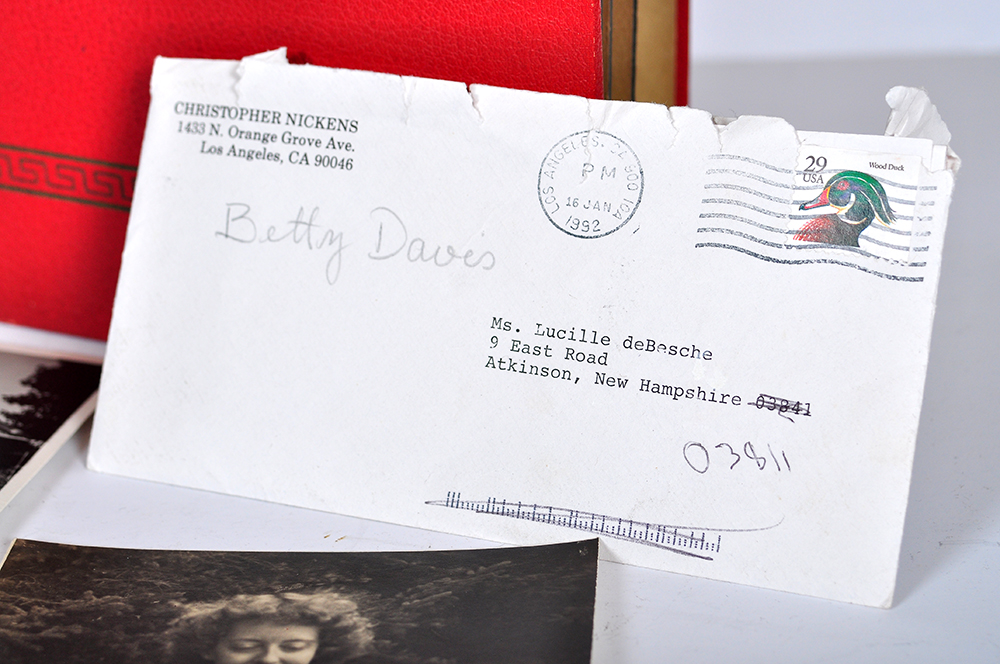 CHRISTOPHER NICKENS
1433 N. Orange Grove Ave.
Los Angeles, CA 90046
LOS ANGELES, CA 900 10A
PM
16 JAN
1992
29
USA
Wood Duck
Betty Daves
Ms. Lucille deBesche
9 East Road
Atkinson, New Hampshire 03841
03811